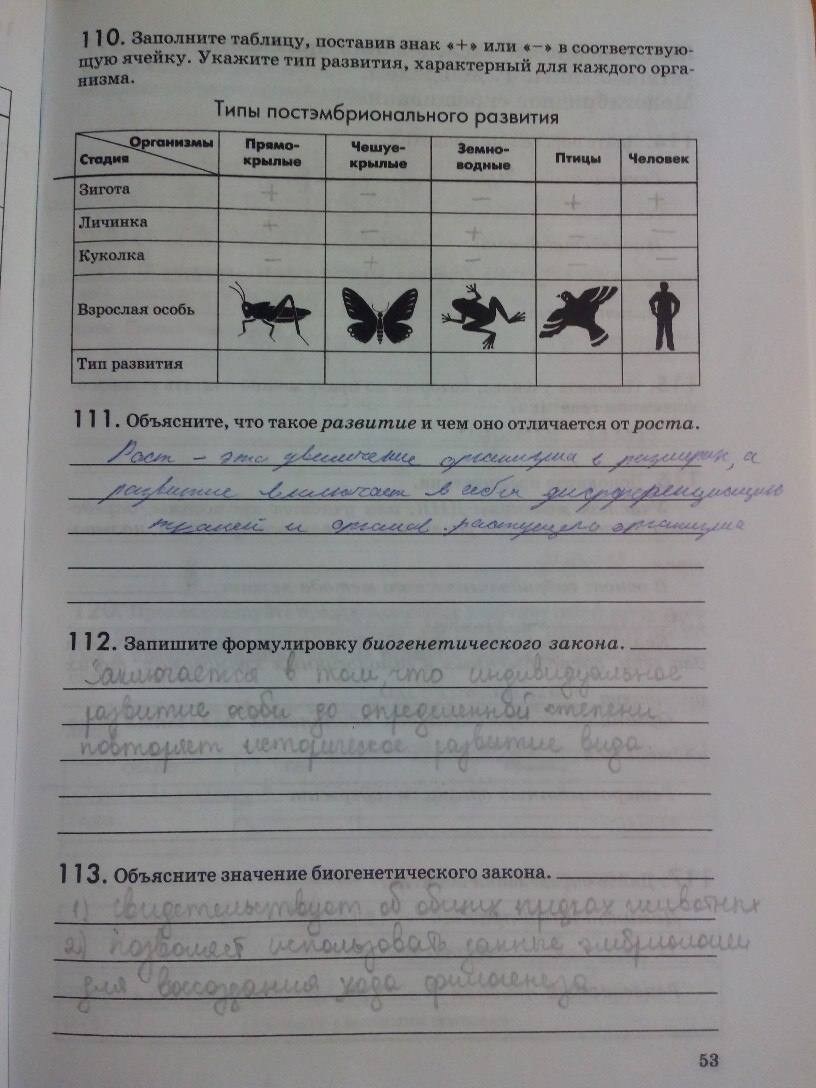 110. Заполните таблицу, поставив знак «+» или «−» в соответствую-
щую ячейку. Укажите тип развития, характерный для каждого орга-
низма.
Типы постэмбрионального развития
Организмы Стадия Прямо-крылые Чешуе-крылые Земно-водные Птицы Человек
Зигота + − − + +
Личинка + − + − −
Куколка − + − − −
Взрослая особь
Тип развития
111. Объясните, что такое развитие и чем оно отличается от роста.
Рост – это увеличение организма в размерах, а
развитие включает в себя дифференциацию
тканей и органов растущего организма
112. Запишите формулировку биогенетического закона.
Заключается в том, что индивидуальное
развитие особи до определенной степени
повторяет историческое развитие вида.
113. Объясните значение биогенетического закона.
1) свидетельствует об общих предках животных
2) позволяет использовать данные эмбриологии
для воссоздания хода филогенеза
53